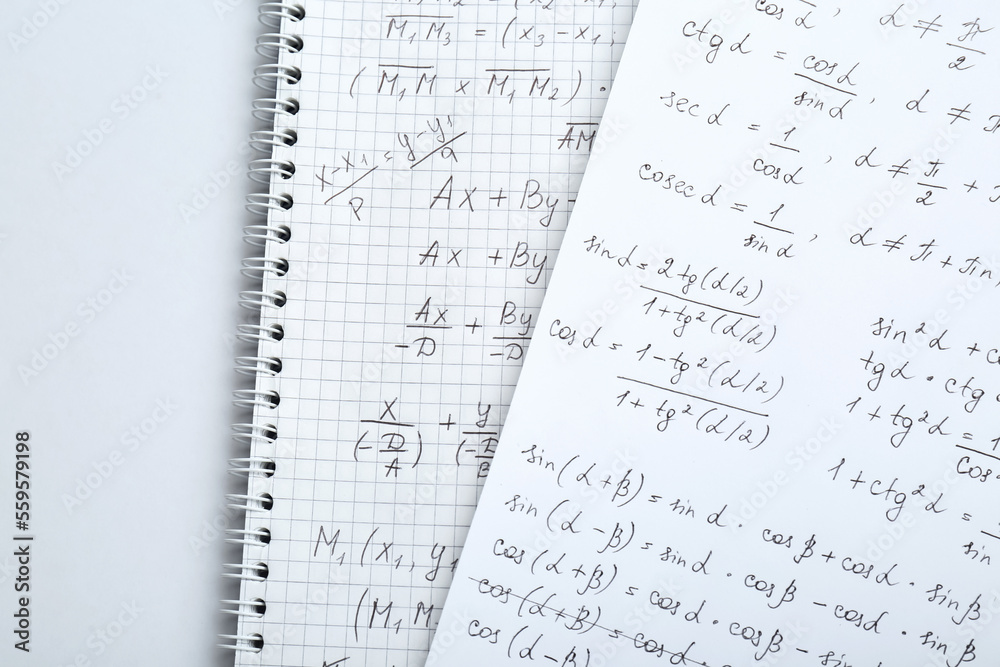 M₁M₃ = (x₃ - x₁;
(M₁M x M₁M₂) ·
AM
Ax + By
Ax + By
Ax/-D + By/-D
x/(-D/A) + y/(-D/B)
M₁(x₁, y₁
(M₁M
cosα, α ≠ π/2
ctgα = cosα/sinα, α ≠
secα = 1/cosα, α ≠ π/2 +
cosecα = 1/sinα, α ≠ π + πn,
sinα = 2tg(α/2)/1+tg²(α/2)
cosα = 1-tg²(α/2)/1+tg²(α/2)
sin²α + c
tgα · ctg
1 + tg²α = 1/cos
1 + ctg²α = /sin
sin(α+β) = sinα · cosβ + cosα · sinβ
sin(α-β) = sinα · cosβ - cosα · sinβ
cos(α+β) = cosα · cosβ - sin
cos(α+β) = cosα
cos(α-β)
Adobe Stock | #559579198